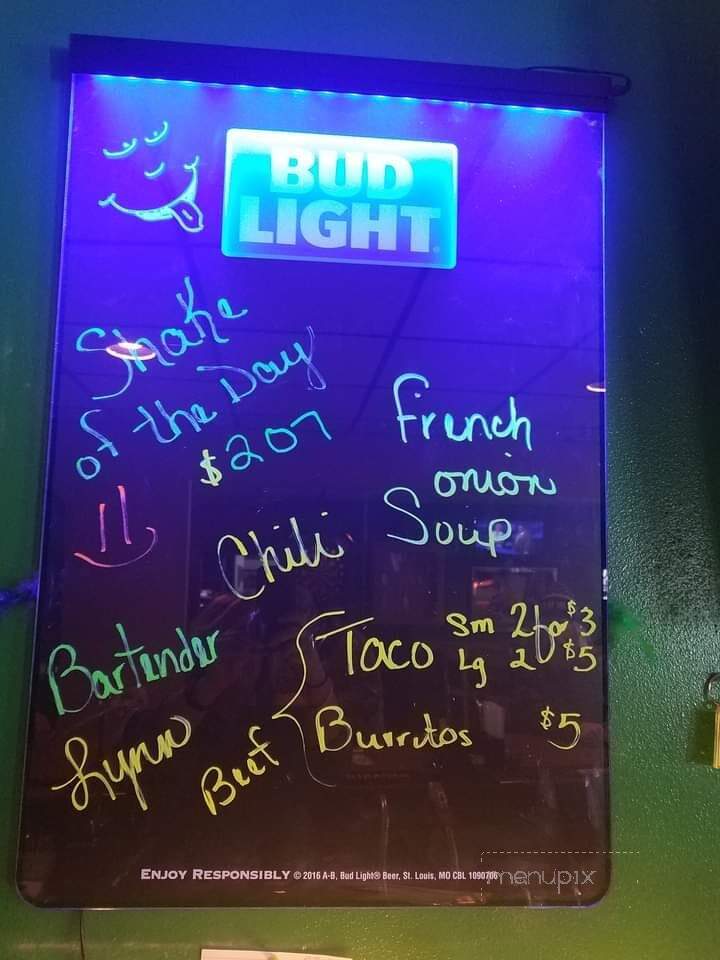 BUD
LIGHT
Shake
of the Day
$207
French
onion
Soup
Chili
Bartender
Lynn
Beef { Taco Sm 2 for $3
Lg 2 $5
Burritos $5
ENJOY RESPONSIBLY © 2016 A-B, Bud Light® Beer, St. Louis, MO CBL 1090706
menupix